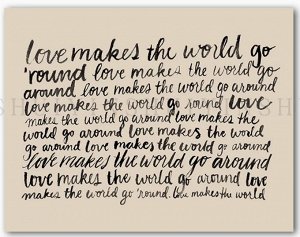 love makes the world go
'round love makes the world go
around love makes the world go around
love makes the world go 'round love
makes the world go around love makes the
world go around love makes the world
go around love makes the world go around
love makes the world go around
love makes the world go around love
makes the world go 'round. love makes the world